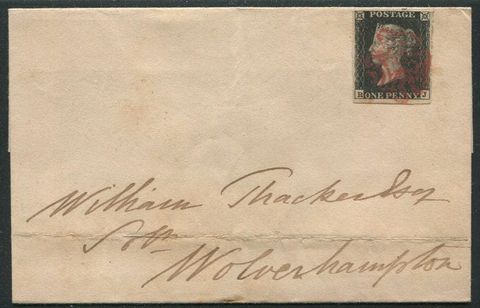 POSTAGE
B ONE PENNY J
William Thacker Esq
Wolverhampton